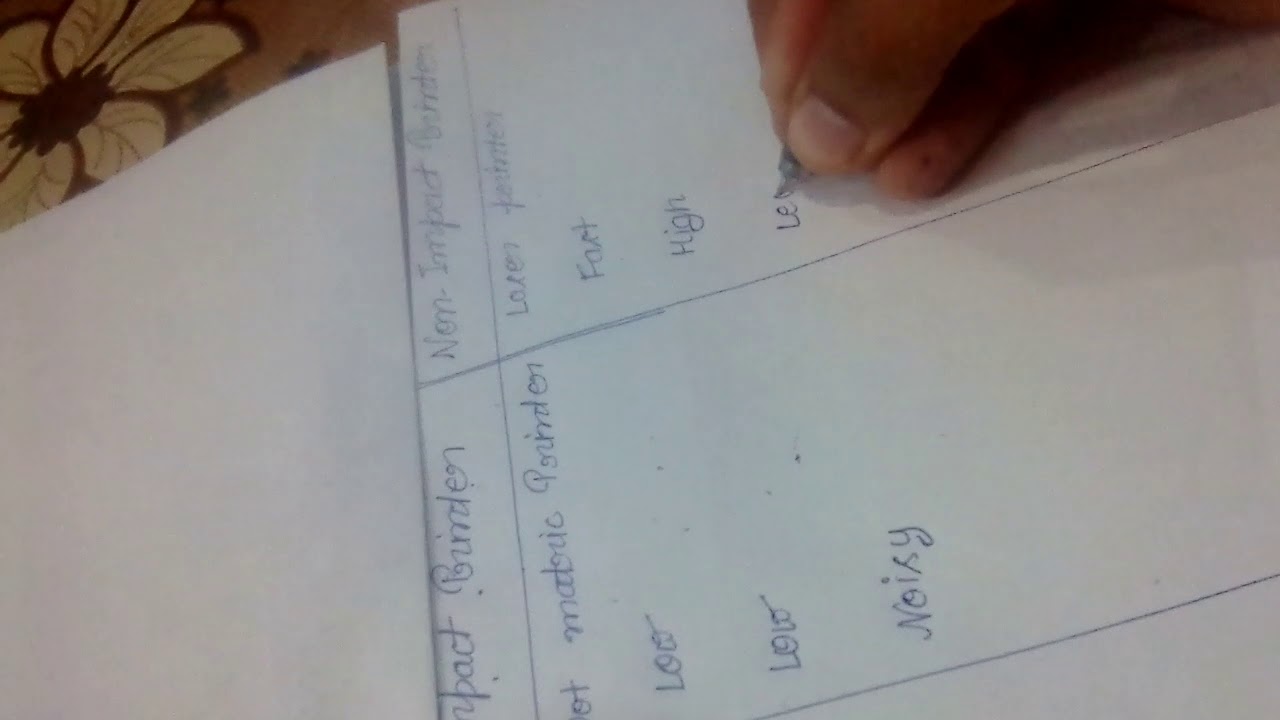 mpact Printer Non-Impact Printer
ot matric Printer Laser printer
Low Fast
Low High
Noisy Le